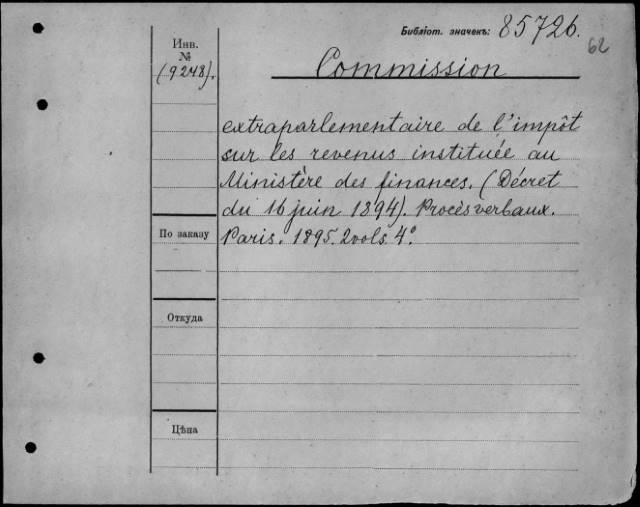 Библіот. значекъ: 85726.
62
Инв.
№
(9248).
Commission
extraparlementaire de l'impôt
sur les revenus instituée au
Ministère des finances. (Décret
du 16 juin 1894). Procèsverbaux.
По заказу
Paris. 1895. 2 vols. 4°.
Откуда
Цѣна